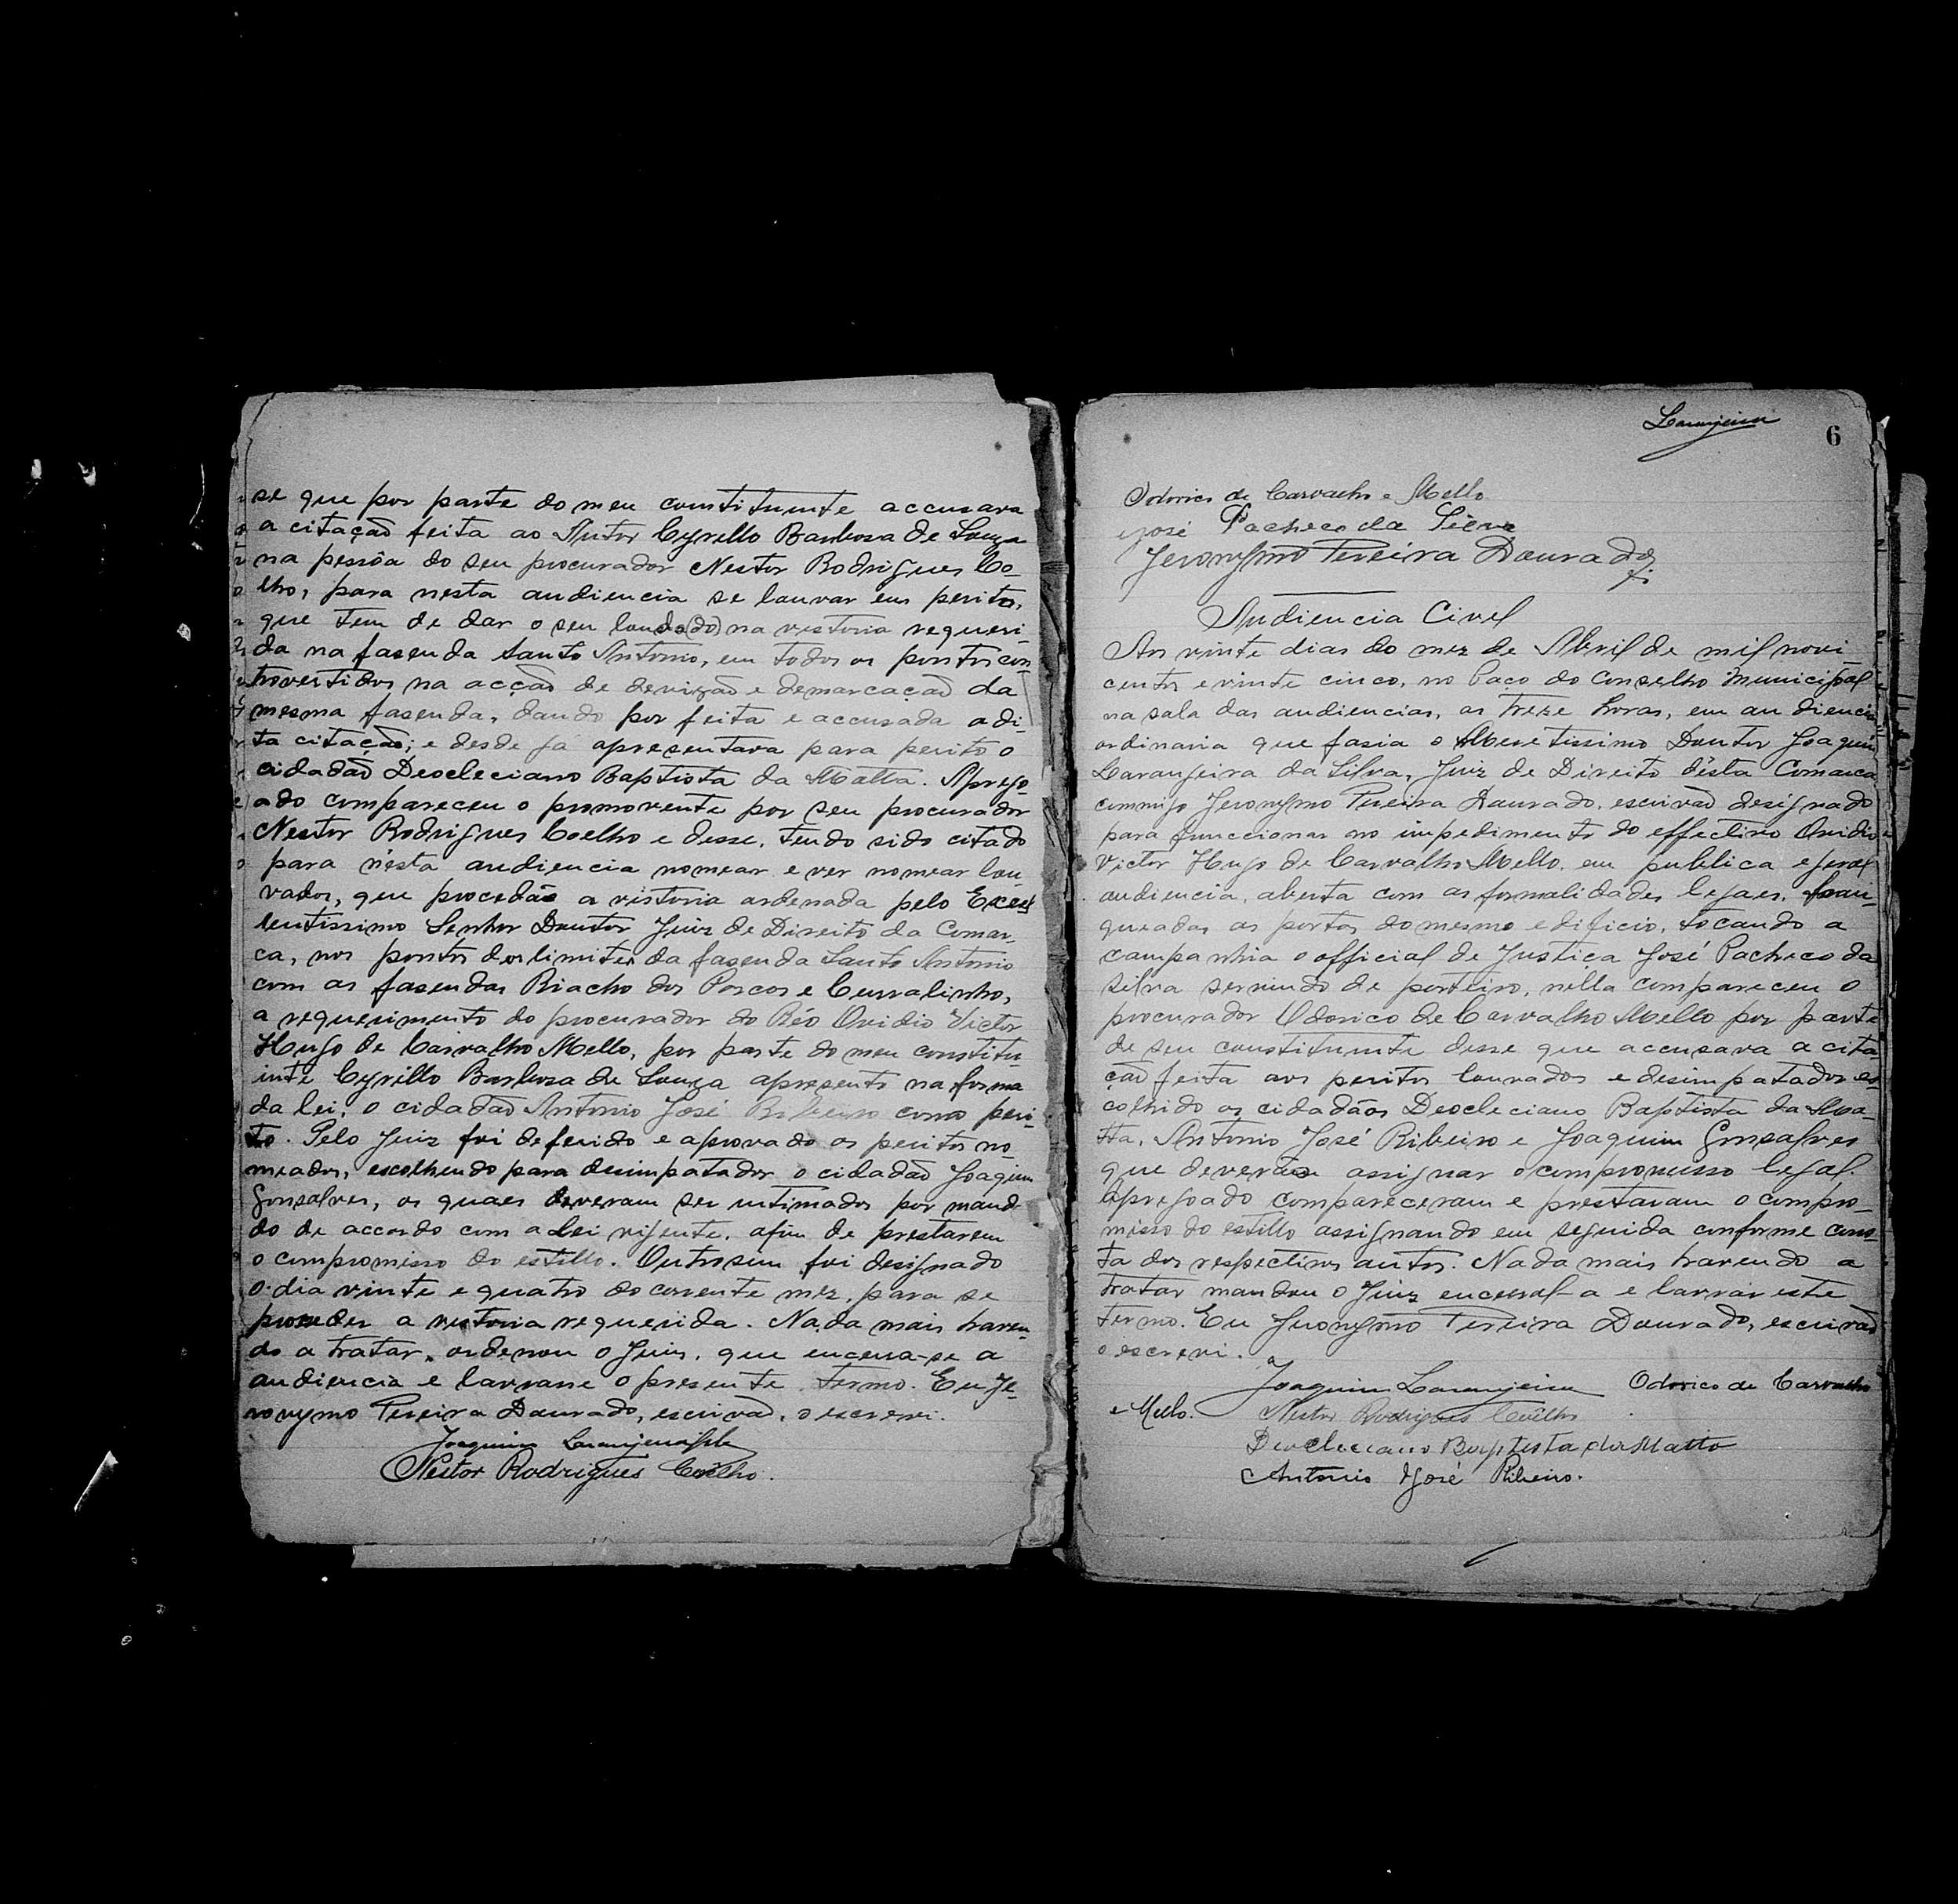 se que por parte do meu constituinte accusava
a citação feita ao Autor Cyrillo Barbosa de Souza
na pessôa do seu procurador Nestor Rodrigues Co-
lho, para nesta audiencia se louvar em peritos,
que tem de dar o seu laudo(do) na vestoria requeri-
da na fasenda Santo Antonio, em todos os pontos con
trovertidos na acção de devizão e demarcação da
mesma fasenda, dando por feita e accusada a di-
ta citação; e desde já apresentava para perito o
cidadão Deocleciano Baptista da Matta. Aprego-
ado compareceu o promovente por seu procurador
Nestor Rodrigues Coelho e desse, tendo sido citado
para nésta audiencia nomear e ver nomear lou-
vados, que procedão a vistoria ordenada pelo Excel
lentissimo Senhor Doutor Juiz de Direito da Comar-
ca, nos pontos dos limites da fasenda Santo Antonio
com as fasendas Riacho dos Porcos e Curralinho,
a requerimento do procurador do Réo Ovidio Victor
Hugo de Carvalho Mello, por parte do meu constitu-
inte Cyrillo Barbosa de Souza apresento na forma
da lei, o cidadão Antonio José Ribeiro como peri-
to. Pelo Juiz foi deferido e aprovado os peritos no-
meados, escolhendo para desimpatador o cidadão Joaquim
Gonsalves, os quaes deveram ser intimados por manda
do de accordo com a Lei vigente, afim de prestarem
o compromisso do estillo. Outrosim foi designado
o dia vinte e quatro do corrente mez, para se
proceder a vestoria requerida. Nada mais haven-
do a tratar, ordenou o Juiz, que encerra-se a
audiencia e lavrasse o presente termo. Eu Je-
ronymo Pereira Dourado, escrivão, o escrevi.
Joaquim Laranjeira
Nestor Rodrigues Coêlho.
Laranjeira
6
Odorico de Carvalho e Mello
José Pacheco da Silva
Jeronymo Pereira Dourado
Audiencia Civel
Aos vinte dias do mez de Abril de mil novi
centos e vinte cinco, no Paço do Conselho Municipal
na sala das audiencias, as treze horas, em audiencia
ordinaria que fasia o Meretissimo Doutor Joaquim
Laranjeira da Silva, Juiz de Direito désta Comarca
commigo Jeronymo Pereira Dourado, escrivão designado
para funccionar no impedimento do effectivo Ovidio
Victor Hugo de Carvalho Mello, em publica e geral
audiencia, aberta com as formalidades legaes, fran-
queadas as portas do mesmo edificio, tocando a
campanhia o official de Justica José Pacheco da
Silva servindo de porteiro, nella compareceu o
procurador Odorico de Carvalho Mello por parte
de seu constituinte desse que accusava a cita-
ção feita aos peritos louvados e desimpatador es-
colhido os cidadãos Deocleciano Baptista da Ma-
tta, Antonio José Ribeiro e Joaquim Gonsalves
que deverão assignar o compromisso legal.
Apregoado compareceram e prestaram o compro-
misso do estillo assignando em seguida conforme cons-
ta dos respectivos autos. Nada mais havendo a
tratar mandou o Juiz encerral-a e lavrar este
termo. Eu Jeronymo Pereira Dourado, escrivão
o escrevi.
Joaquim Laranjeira Odorico de Carvalho
e Mello. Nestor Rodrigues Coêlho
Deocleciano Baptista da Matta
Antonio José Ribeiro.